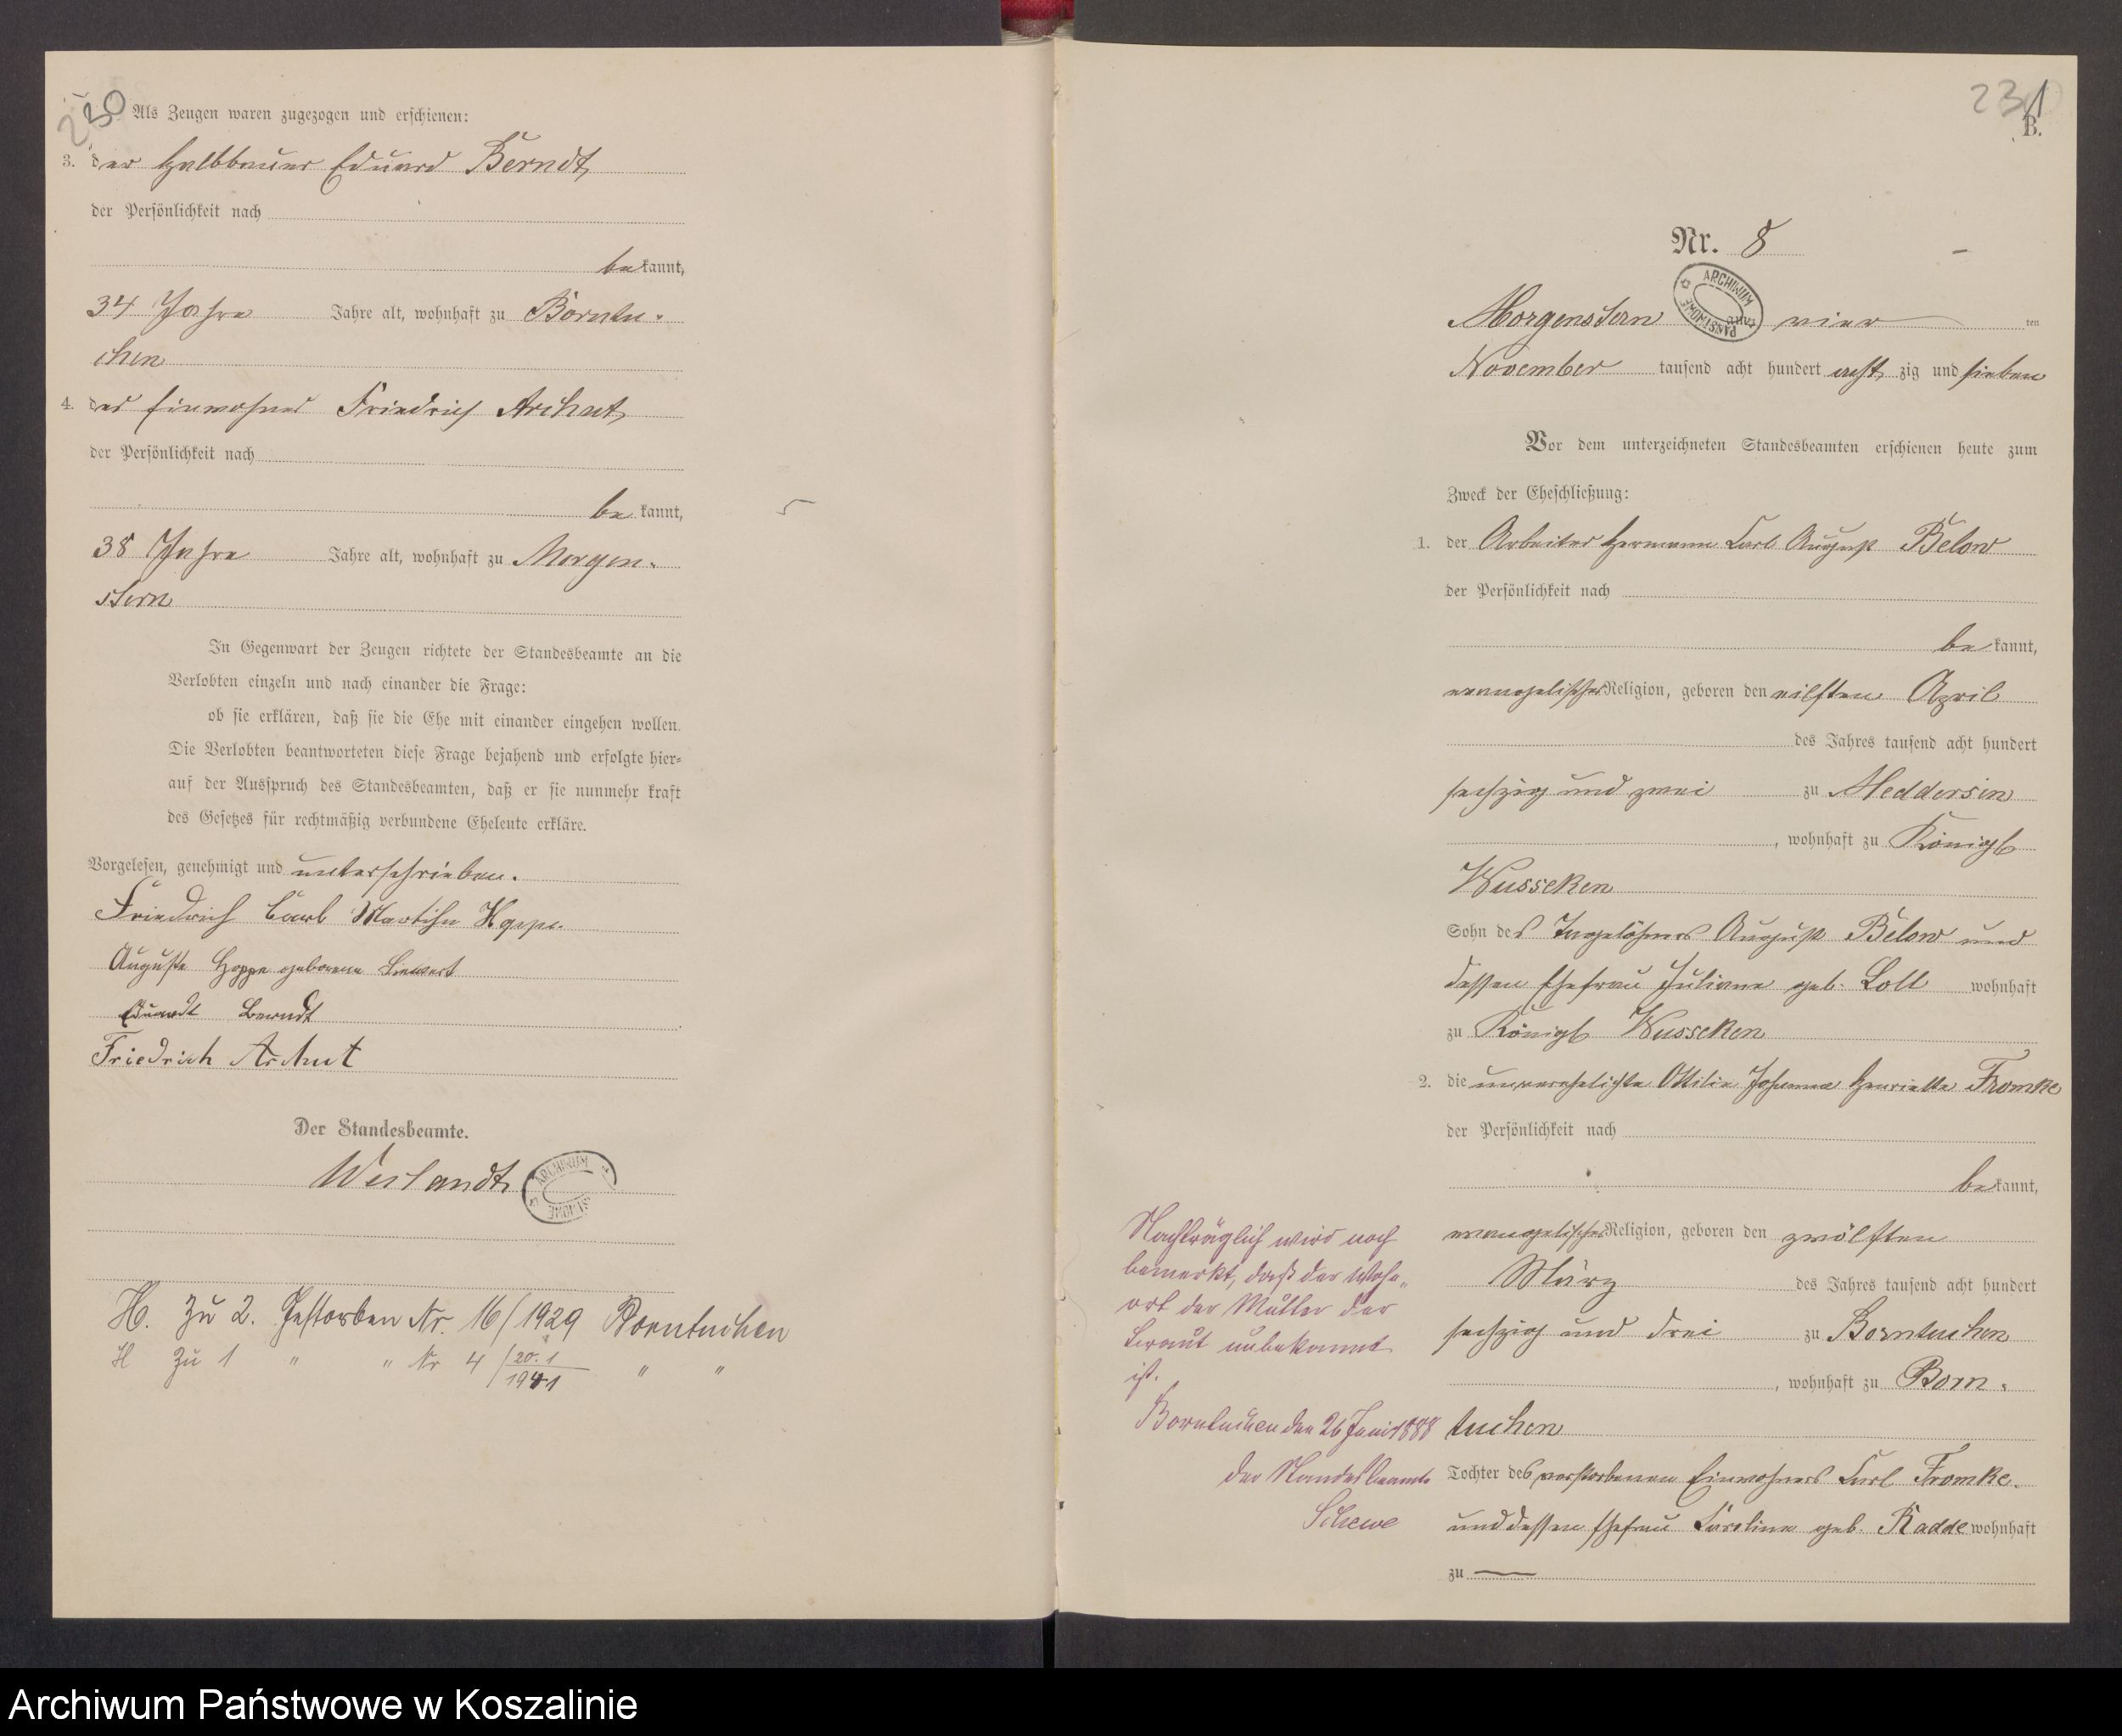 230
Als Zeugen waren zugezogen und erschienen:
3. der Halbbauer Eduard Berndt,
der Persönlichkeit nach
be kannt,
34 Jahre Jahre alt, wohnhaft zu Borntu-
chen
4. der Einwohner Friedrich Archut,
der Persönlichkeit nach
be kannt,
38 Jahre Jahre alt, wohnhaft zu Morgen-
stern
In Gegenwart der Zeugen richtete der Standesbeamte an die
Verlobten einzeln und nach einander die Frage:
ob sie erklären, daß sie die Ehe mit einander eingehen wollen.
Die Verlobten beantworteten diese Frage bejahend und erfolgte hier-
auf der Ausspruch des Standesbeamten, daß er sie nunmehr kraft
des Gesetzes für rechtmäßig verbundene Eheleute erkläre.
Vorgelesen, genehmigt und unterschrieben.
Friedrich Carl Martin Hoppe.
Auguste Hoppe geborene Liewert
Eduardt Berndt
Friedrich Archut
Der Standesbeamte.
Weilandt
ARCHIWUM
H. Zu 2. Gestorben Nr. 16/1929 Borntuchen
H Zu 1 " " Nr 4/20.1 " "
1941
231
B.
Nr. 8
ARCHIWUM PAŃSTWOWE
Morgenstern am vier ten
November tausend acht hundert acht zig und sieben
Vor dem unterzeichneten Standesbeamten erschienen heute zum
Zweck der Eheschließung:
1. der Arbeiter Hermann Carl August Below
der Persönlichkeit nach
be kannt,
evangelischer Religion, geboren den eilften April
des Jahres tausend acht hundert
sechzig und zwei zu Meddersin
, wohnhaft zu Königl
Wusseken
Sohn des Tagelöhners August Below und
dessen Ehefrau Juliane geb. Loll wohnhaft
zu Königl Wusseken
2. die unverehelichte Ottilie Johanna Henriette Fromke
der Persönlichkeit nach
be kannt,
evangelischer Religion, geboren den zwölften
März des Jahres tausend acht hundert
sechzig und drei zu Borntuchen
, wohnhaft zu Born-
tuchen
Tochter des verstorbenen Einwohners Carl Fromke.
und dessen Ehefrau Caroline geb. Radde wohnhaft
zu —
Nachträglich wird noch
bemerkt, daß der Wohn-
ort der Mutter der
Braut unbekannt
ist.
Borntuchen den 26 Juni 1888
Der Standesbeamte
Schewe
Archiwum Państwowe w Koszalinie